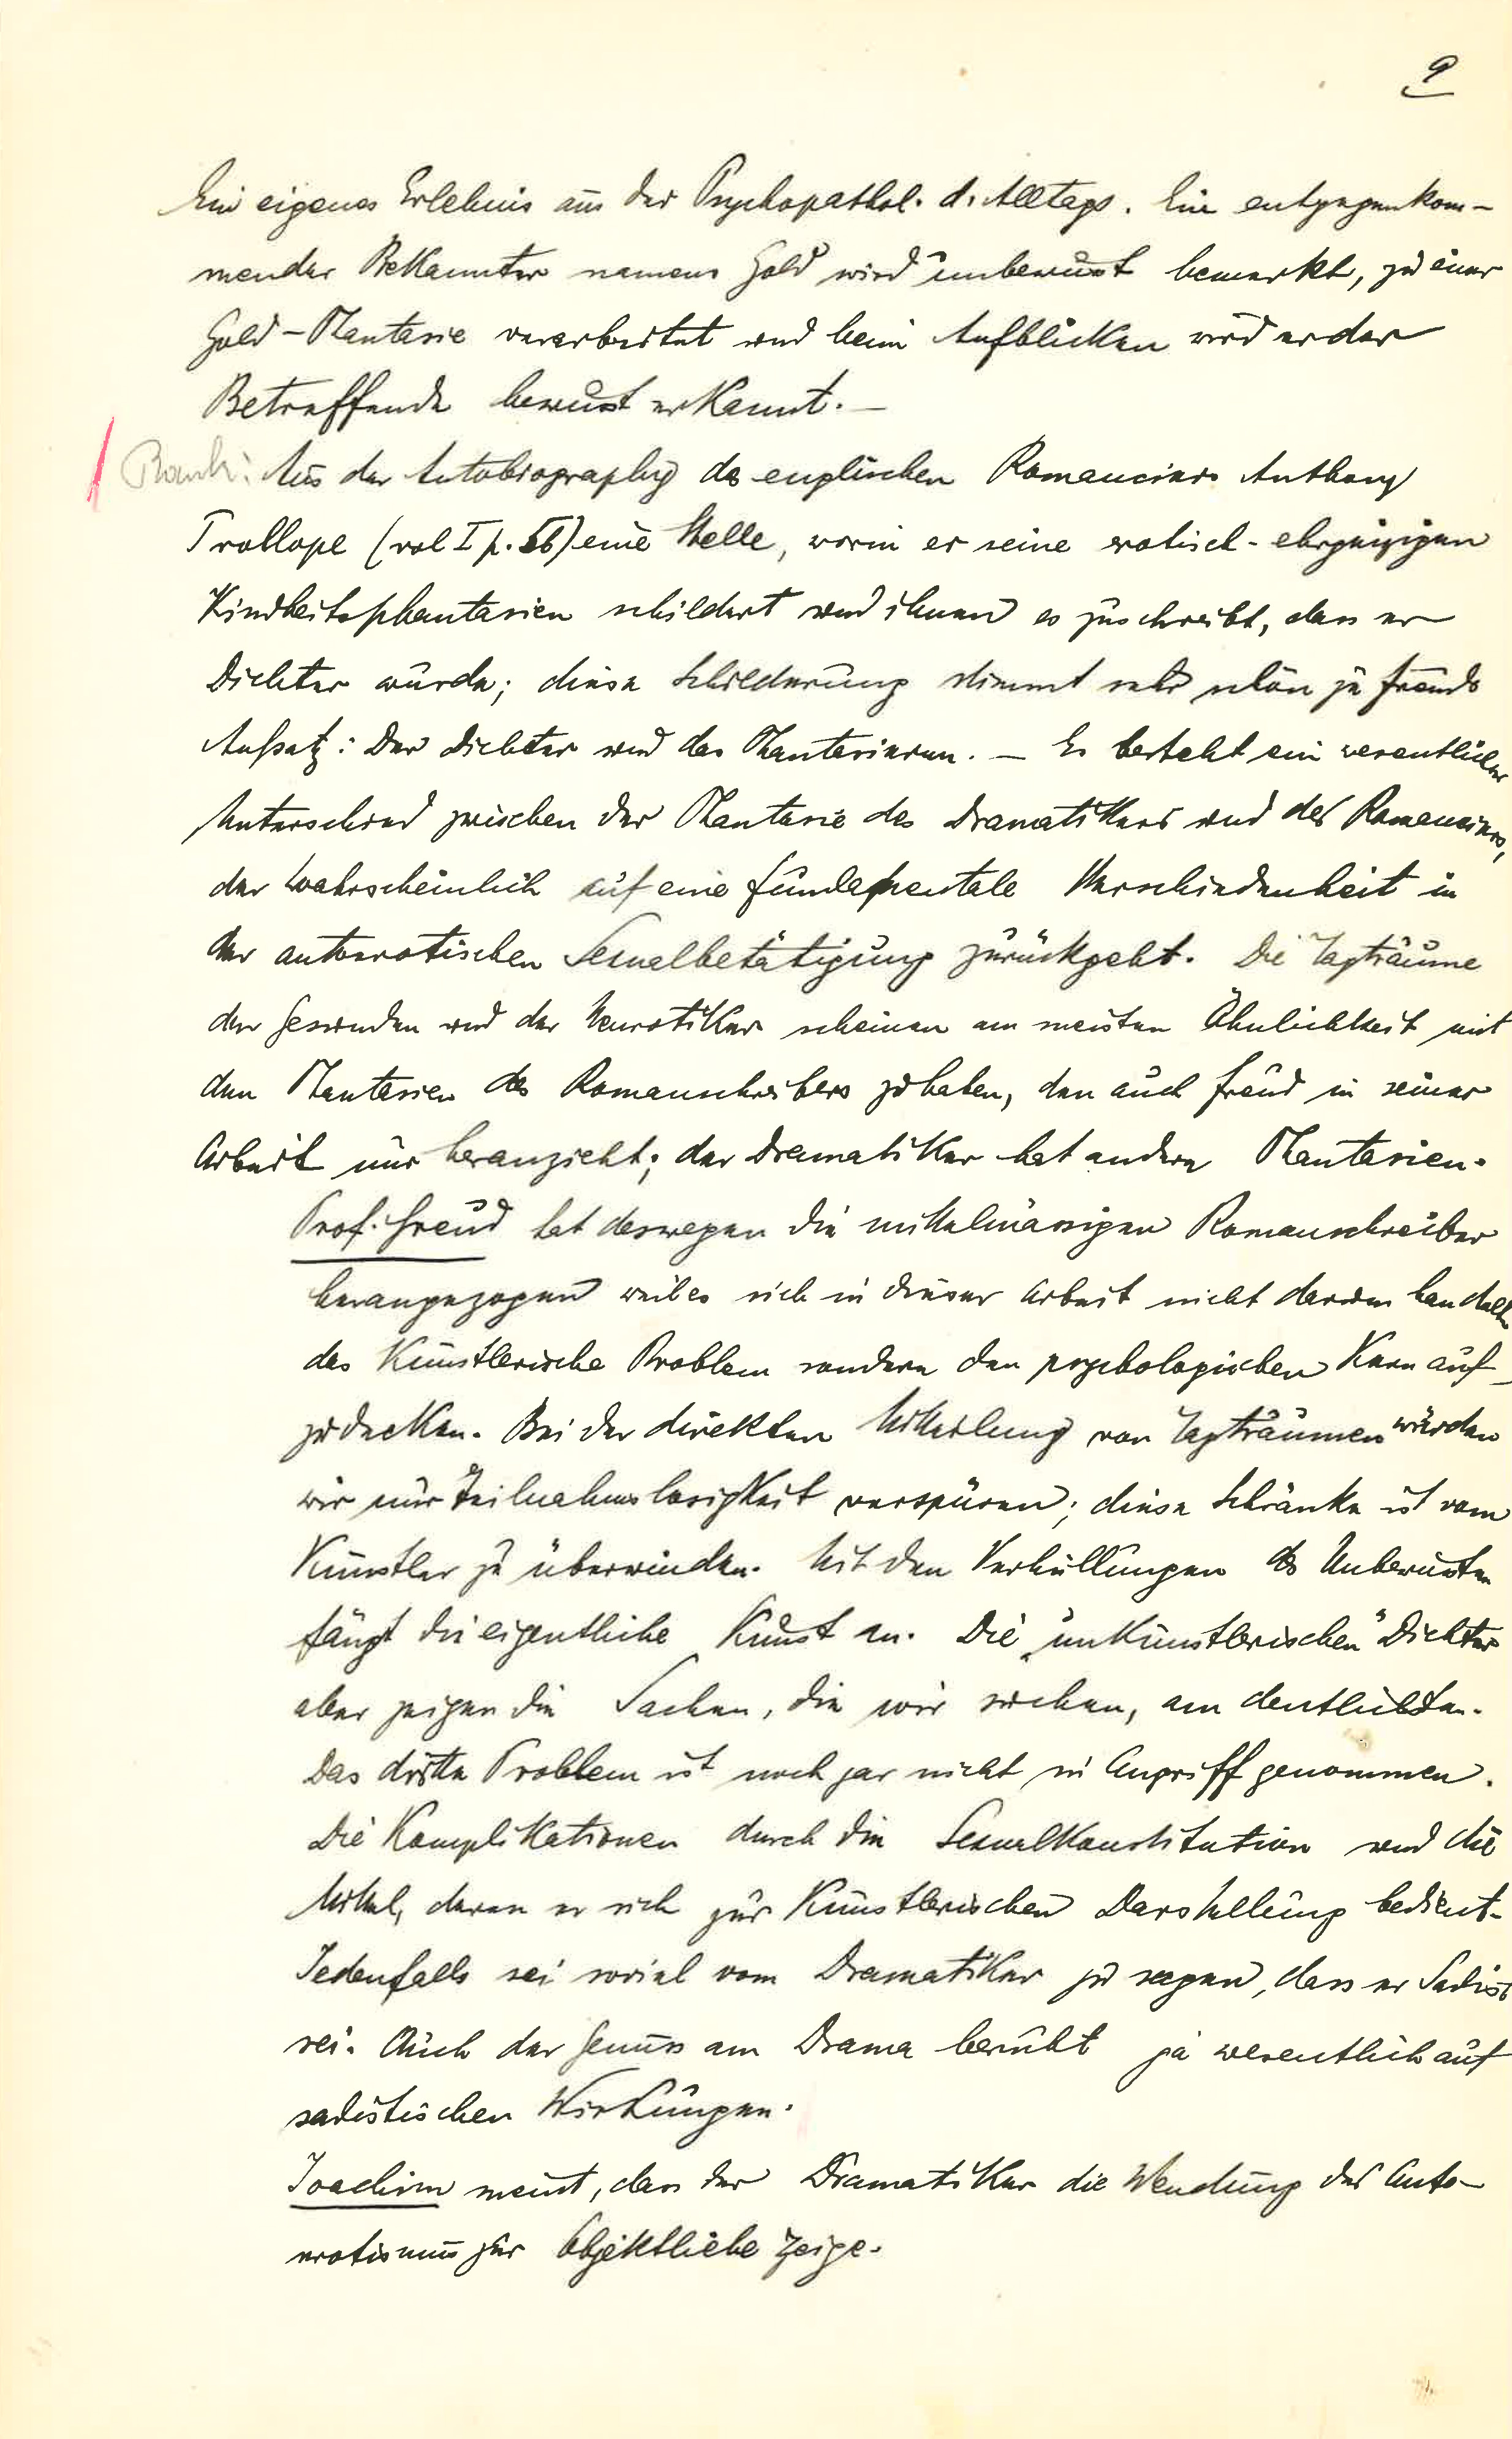 9
Ein eigenes Erlebnis aus der Psychopathol. d. Alltags. Ein entgegenkom-
mender Bekannter namens Gold wird unbewusst bemerkt, zu einer
Gold-Phantasie verarbeitet und beim Aufblicken wird er der
Betreffende bewusst erkannt. —
Rank: Aus der Autobiography des englischen Romanciers Anthony
Trollope (vol I p. ) eine Stelle, worin er seine erotisch-ehrgeizigen
Kindheitsphantasien schildert und ihnen es zuschreibt, dass er
Dichter wurde; diese Schilderung stimmt sehr schön zu Freuds
Aufsatz: Der Dichter und das Phantasieren. — Es besteht ein wesentlicher
Unterschied zwischen der Phantasie des Dramatikers und des Romanciers,
der wahrscheinlich auf eine fundamentale Verschiedenheit in
der autoerotischen Sexualbetätigung zurückgeht. Die Tagträume
der Gesunden und der Neurotiker scheinen am meisten Ähnlichkeit mit
den Phantasien des Romanschreibers zu haben, den auch Freud in seiner
Arbeit nur heranzieht; der Dramatiker hat andere Phantasien.
Prof. Freud hat deswegen die mittelmässigen Romanschreiber
herangezogen weil es sich in dieser Arbeit nicht darum handelte
das Künstlerische Problem sondern den psychologischen Kern auf-
zudecken. Bei der direkten Mitteilung von Tagträumen würden
wir nur Teilnahmslosigkeit verspüren; diese Schranke ist vom
Künstler zu überwinden. Mit den Verhüllungen des Unbewussten
fängt die eigentliche Kunst an. Die „unkünstlerischen" Dichter
aber zeigen die Sachen, die wir suchen, am deutlichsten.
Das dritte Problem ist noch gar nicht in Angriff genommen.
Die Komplikationen durch die Sexualkonstitution und die
Mittel, deren er sich zur Künstlerischen Darstellung bedient.
Jedenfalls sei soviel vom Dramatiker zu sagen, dass er Sadist
sei. Auch der Genuss am Drama beruht ja wesentlich auf
sadistischen Wirkungen.
Joachim meint, dass der Dramatiker die Wendung des Auto-
erotismus zur Objektliebe zeige.